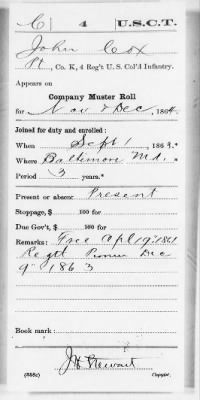 C | 4 | U.S.C.T.
John Cox
Pt., Co. K, 4 Reg't U. S. Col'd Infantry.
Appears on
Company Muster Roll
for Nov & Dec, 1864.
Joined for duty and enrolled:
When Sept 1, 1863.*
Where Baltimore Md.*
Period 3 years.*
Present or absent Present
Stoppage, $ 100 for
Due Gov't, $ 100 for
Remarks: Free Apl 19" 1861
Regtl Pioneer Dec
9" 1863
Book mark:
J H Stewart
(358c) Copyist.